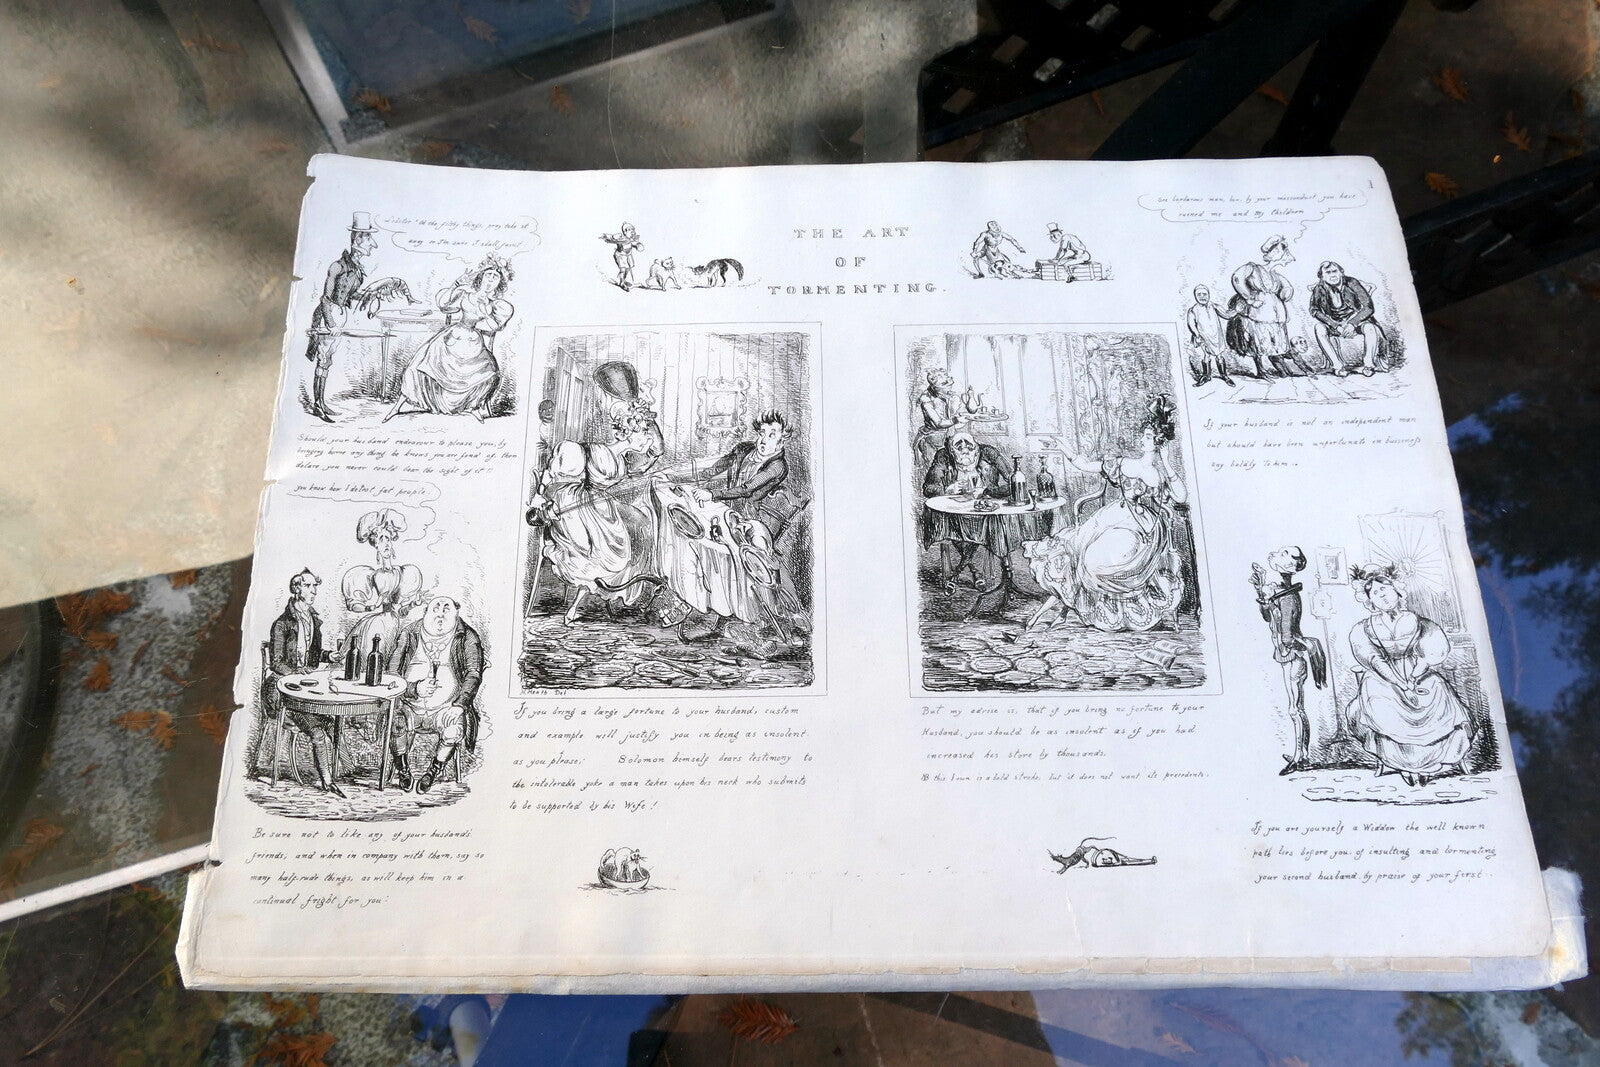 1
THE ART
OF
TORMENTING.
Lobster! Oh the filthy things, pray take it
away or I'm sure I shall faint
Should your husband endeavour to please you, by
bringing home any thing he knows you are fond of, then
declare you never could bear the sight of it!!
you know how I detest fat people
Be sure not to like any of your husbands
friends, and when in company with them, say so
many half-rude things, as will keep him in a
continual fright for you!
H. Heath Del
If you bring a large fortune to your husband, custom
and example will justify you in being as insolent
as you please; Solomon himself bears testimony to
the intolerable yoke a man takes upon his neck who submits
to be supported by his Wife!
But my advise is, that if you bring no fortune to your
Husband, you should be as insolent as if you had
increased his store by thousands.
NB this I own is a bold stroke, but it does not want its precedents.
barbarous man, by your misconduct you have
ruined me and my Children
If your husband is not an independent man
but should have been unfortunate in bussiness
say boldly to him..
If you are yourself a Widdow the well known
path lies before you, of insulting and tormenting
your second husband, by praise of your first..